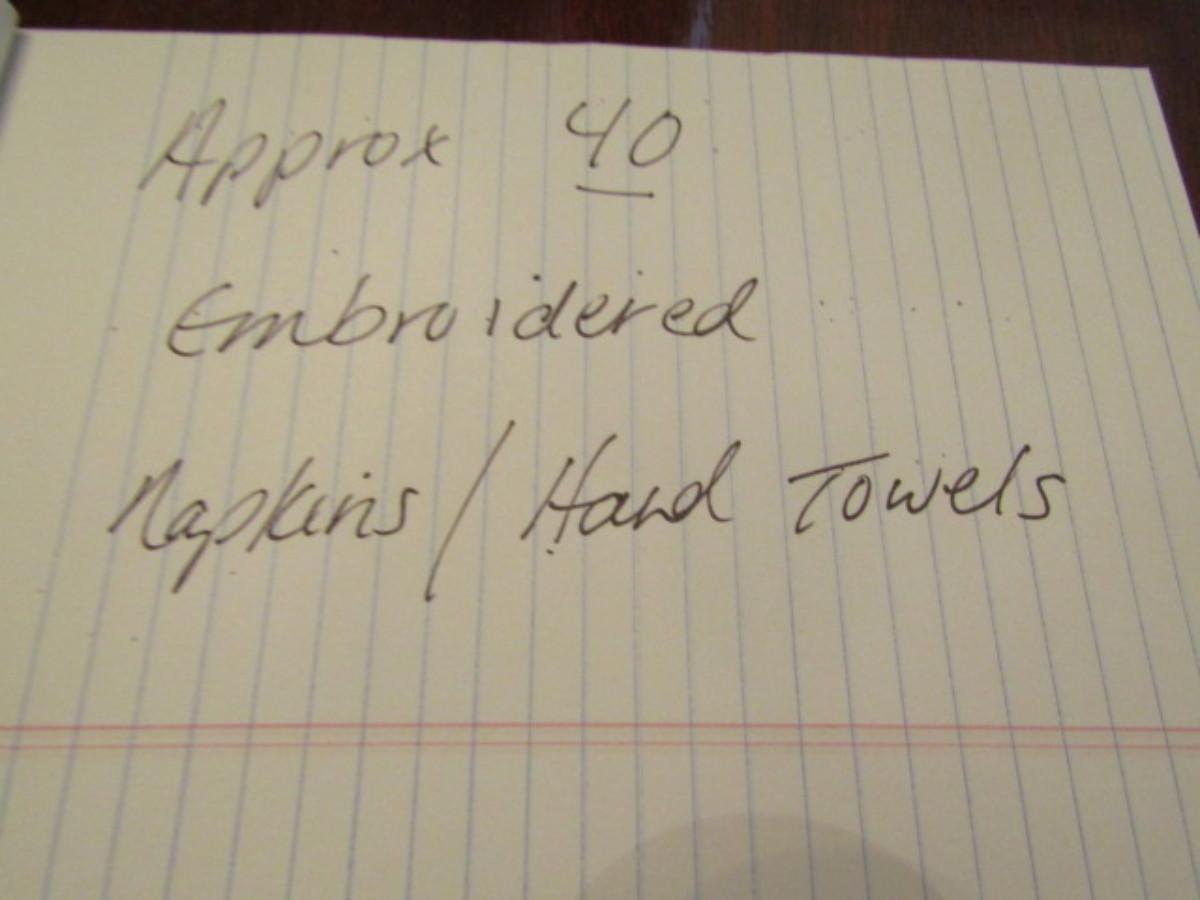 Approx 40
Embroidered
Napkins / Hand Towels